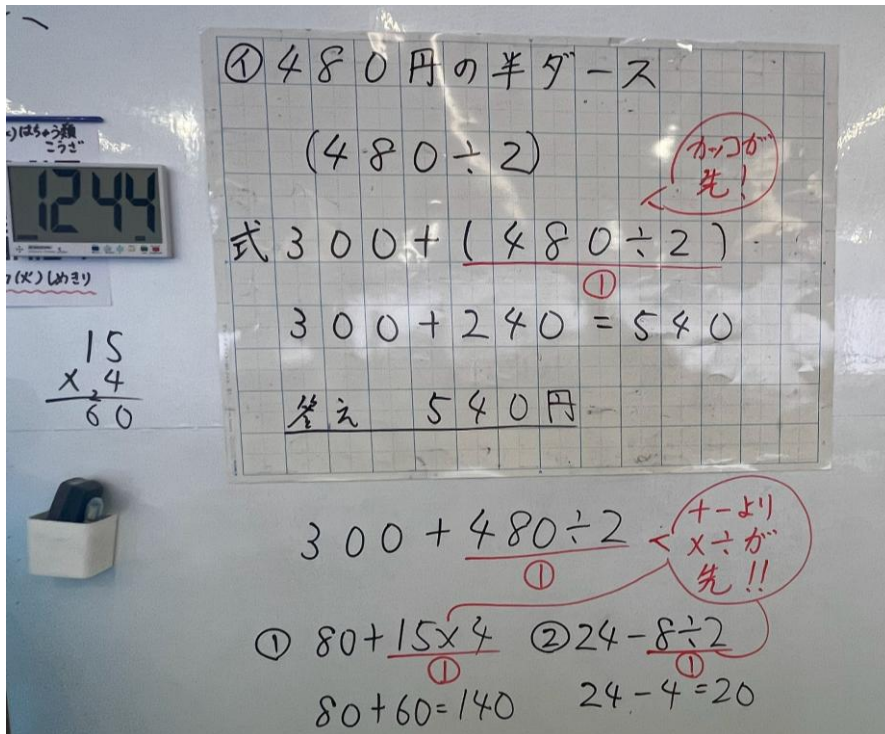 はちゅう類
こうざ
12 44
(火)しめきり
15
×4
2
60
㋑480円の半ダース
(480÷2)
カッコが
先!
式 300+(480÷2)
①
300+240=540
答え 540円
300+480÷2
①
+-より
×÷が
先!!
① 80+15×4
①
80+60=140
② 24-8÷2
①
24-4=20